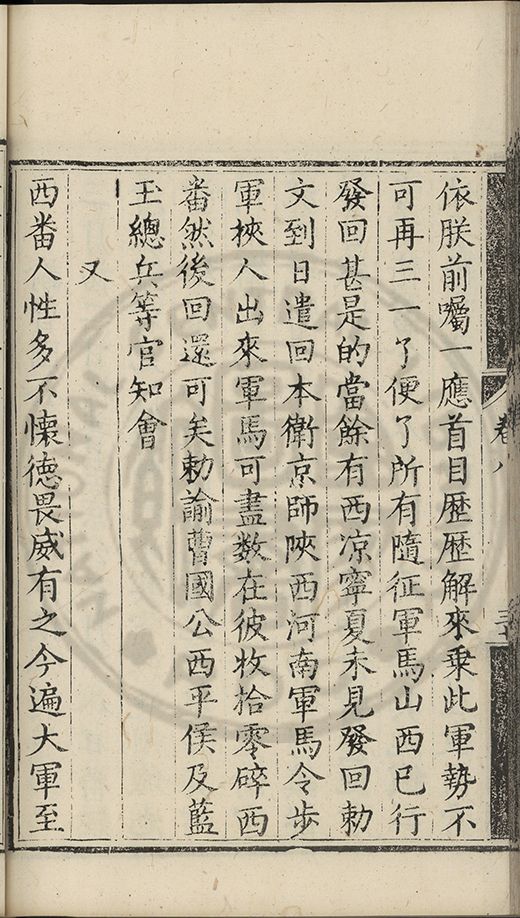 依朕前囑一應首目歷歷解來乗此軍勢不
可再三一了便了所有隨征軍馬山西已行
發回甚是的當餘有西凉寧夏未見發回勅
文到日遣回本衛京師陝西河南軍馬令歩
軍挾人出來軍馬可盡数在彼收拾零碎西
畨然後回還可矣勅諭曹國公西平侯及藍
玉總兵等官知會
又
西畨人性多不懐德畏威有之今遍大軍至
卷八